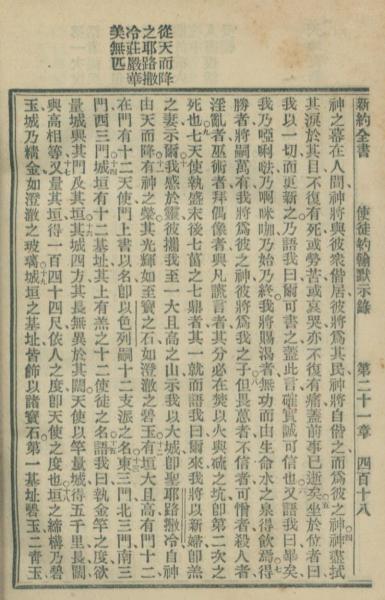 新約全書　使徒約翰默示錄　第二十一章　四百十八
從天而降
之耶路撒
冷莊嚴華
美無匹
神之幕在人間神將與彼衆偕居彼將爲其民神將自偕之而爲彼之神四神盡拭
其淚於其目不復有死或勞苦或哀哭亦不復有痛蓋前事已逝矣五坐於位者曰
我以一切而更新之乃語我曰爾可書之蓋此言確實誠可信也六又語我曰畢矣
我乃啞唎㗂乃啊咪咖乃始乃終我將賜渴者無功而由生命水之泉得飲焉七得
勝者將嗣萬有我將爲彼之神彼將爲我之子八但畏葸者不信者可憎者殺人者
淫亂者巫術者拜偶像者與凡謊言者其分必在焚以火與硫之坑卽第二次之
死也九七天使執盛末後七菑之七鼎者其一就而語我曰爾來我將以新婦卽羔
之妻示爾十我感於靈彼攜我至一大且高之山示我以大城卽聖耶路撒冷自神
由天而降十一有神之榮其光輝如至寶之石如澄澈之碧玉十二有垣大且高有門十二
在門有十二天使門上書以名卽以色列嗣十二支派之名十三東三門北三門南三
門西三門十四城垣有十二基址其上有羔之十二使徒之名十五語我曰執金竿之度欲
量城與其門及其垣十六其城四方其長無異於其闊天使以竿量城得五千里長闊
與高相等十七又量其垣得一百四十四尺依人之度卽天使之度也十八垣之締構乃碧
玉城乃精金如澄澈之玻璃十九城垣之基址皆飾以諸寶石第一基址碧玉二青玉